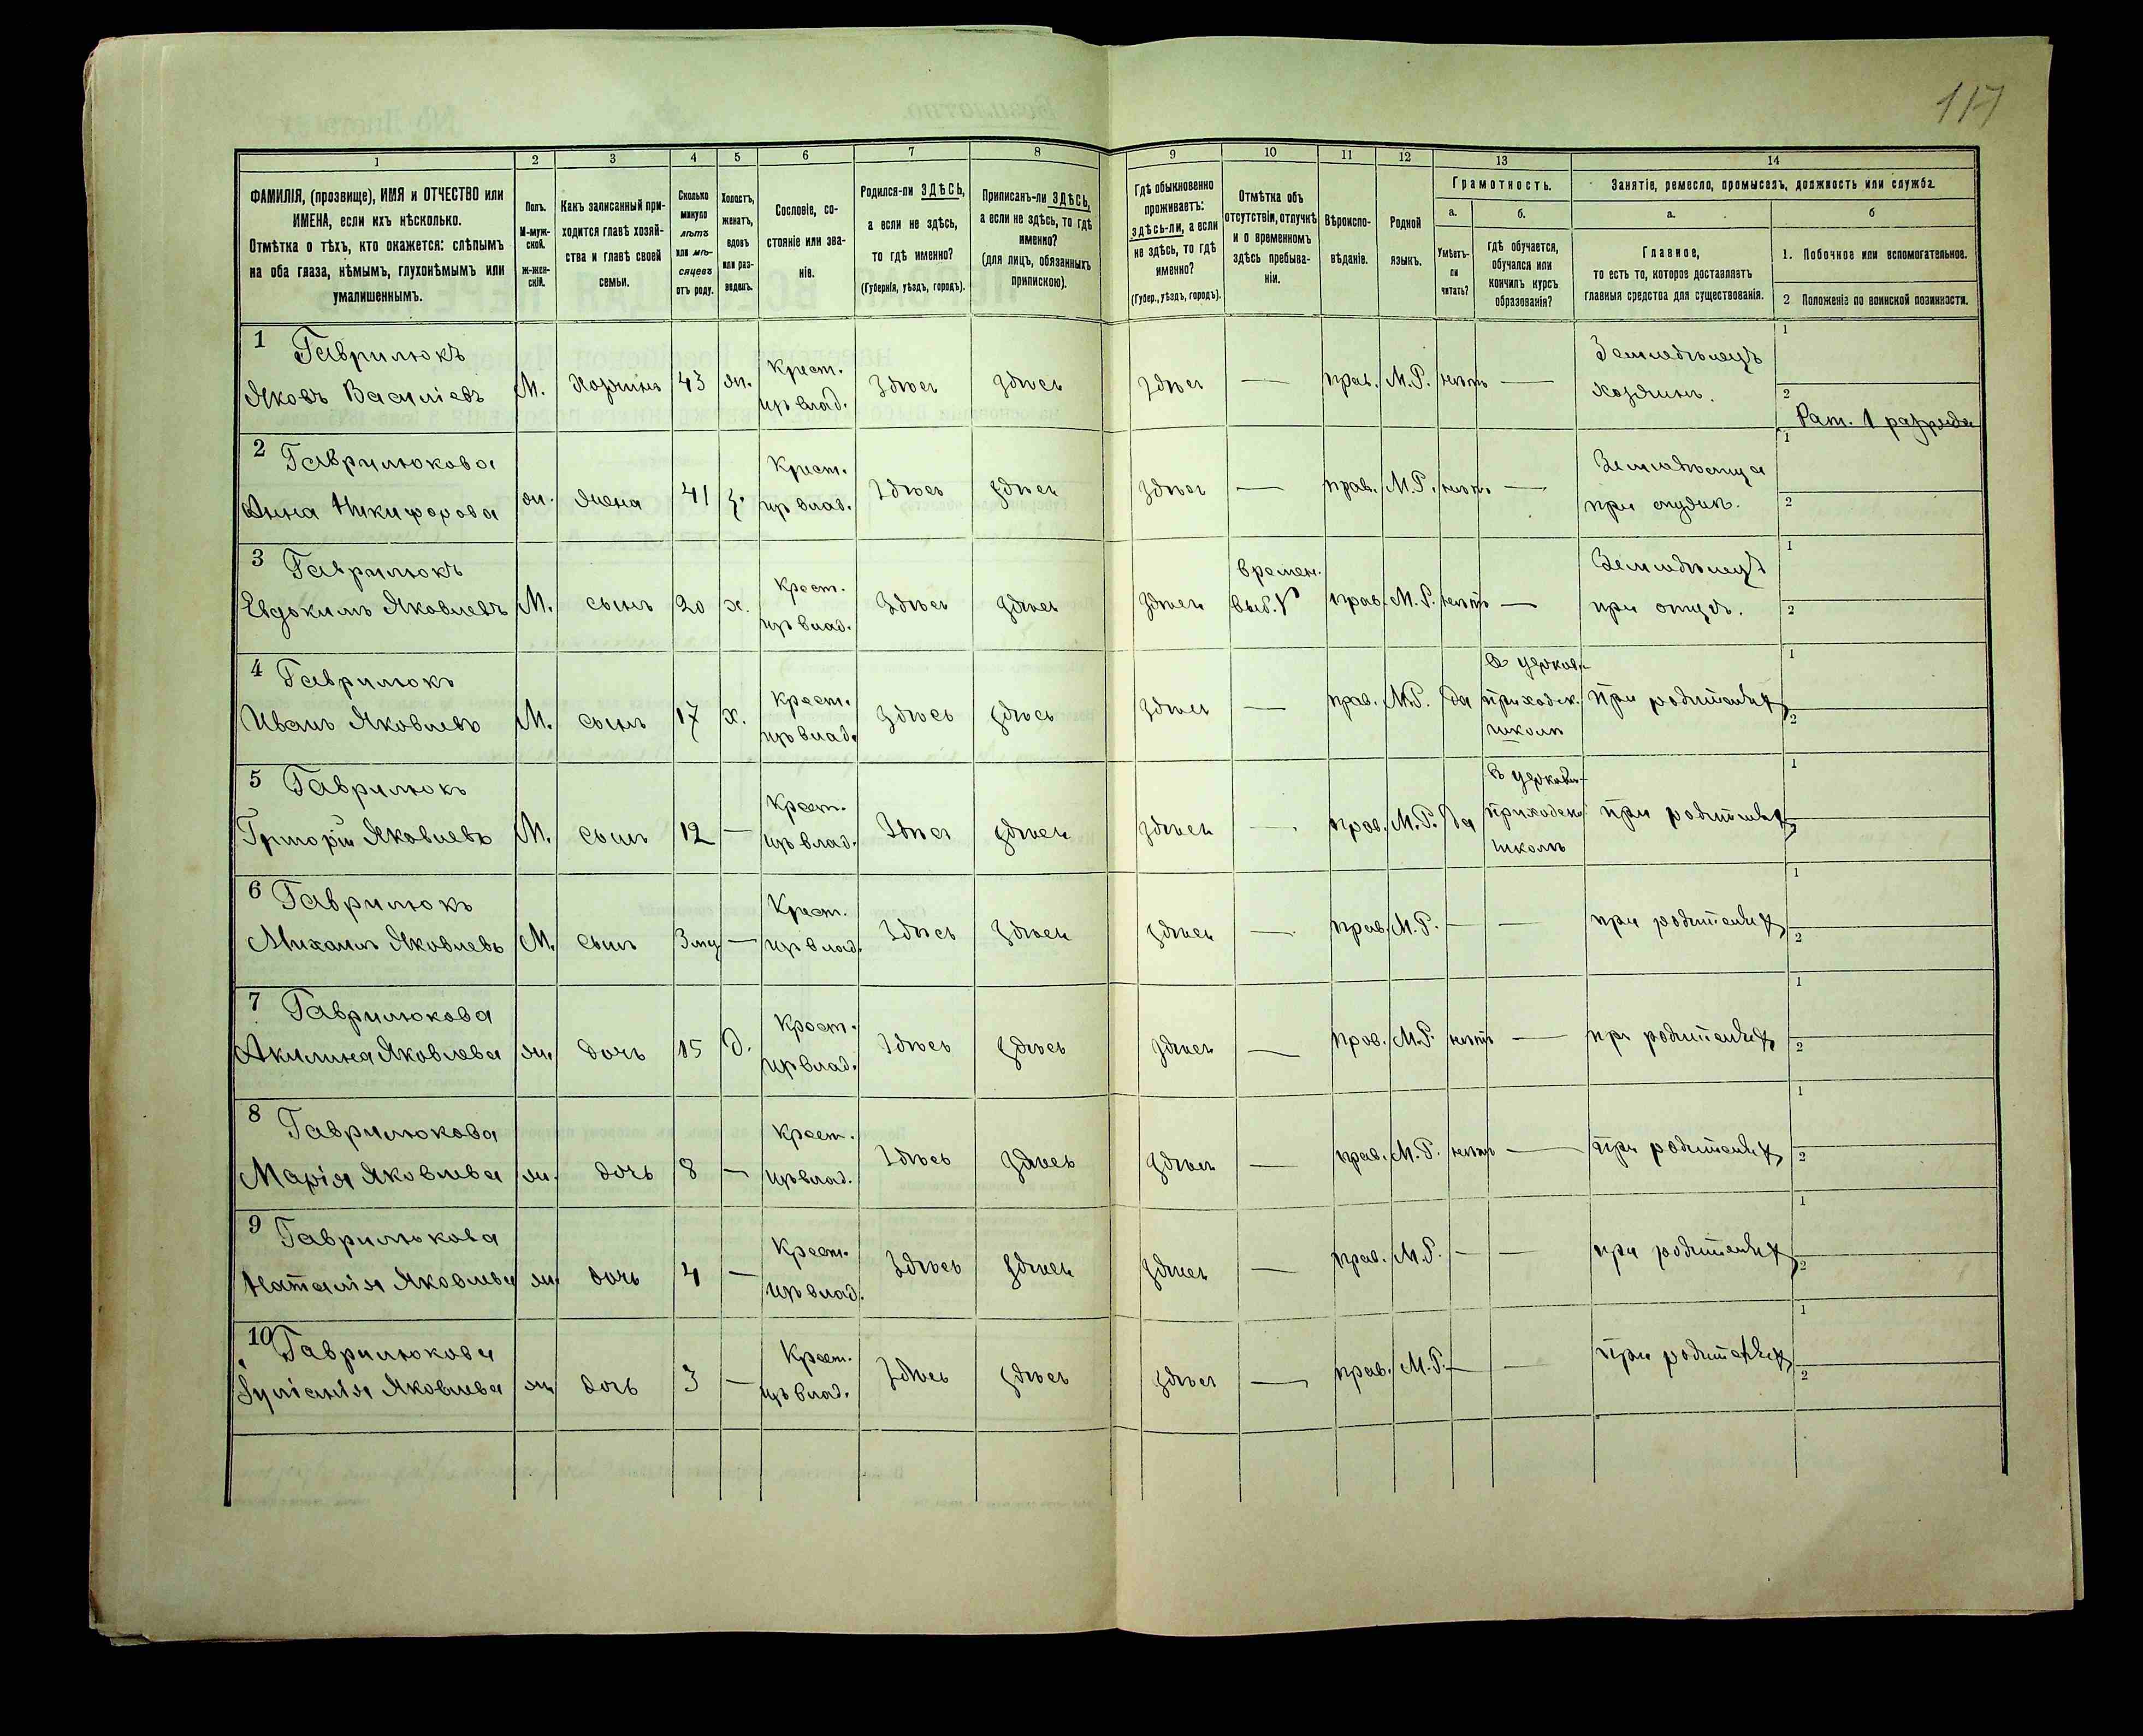 117
1 2 3 4 5 6 7 8 9 10 11 12 13 14
ФАМИЛІЯ, (прозвище), ИМЯ и ОТЧЕСТВО или
ИМЕНА, если ихъ нѣсколько.
Отмѣтка о тѣхъ, кто окажется: слѣпымъ
на оба глаза, нѣмымъ, глухонѣмымъ или
умалишеннымъ.
Полъ.
М-муж-
ской.
ж-жен-
скій.
Какъ записанный при-
ходится главѣ хозяй-
ства и главѣ своей
семьи.
Сколько
минуло
лѣтъ
или мѣ-
сяцевъ
отъ роду.
Холостъ,
женатъ,
вдовъ
или раз-
веденъ.
Сословіе, со-
стояніе или зва-
ніе.
Родился-ли ЗДѢСЬ,
а если не здѣсь,
то гдѣ именно?
(Губернія, уѣздъ, городъ).
Приписанъ-ли ЗДѢСЬ,
а если не здѣсь, то гдѣ
именно?
(для лицъ, обязанныхъ
припискою).
Гдѣ обыкновенно
проживаетъ:
здѣсь-ли, а если
не здѣсь, то гдѣ
именно?
(Губер., уѣздъ, городъ).
Отмѣтка объ
отсутствіи, отлучкѣ
и о временномъ
здѣсь пребыва-
ніи.
Вѣроиспо-
вѣданіе.
Родной
языкъ.
Грамотность.
а.
Умѣетъ-
ли
читать?
б.
гдѣ обучается,
обучался или
кончилъ курсъ
образованія?
Занятіе, ремесло, промыселъ, должность или служба.
а.
Главное,
то есть то, которое доставляетъ
главныя средства для существованія.
б
1. Побочное или вспомогательное.
2 Положеніе по воинской повинности.
1 Гаврилюкъ Крест. Земледѣлецъ 1
Яковъ Василіевъ М. Хозяинъ 43 ж. из влад. Здѣсь здѣсь здѣсь — прав. М.Р. нѣтъ — хозяинъ. 2
Рат. 1 разряда
2 Гаврилюкова Крест. 1
Анна Никифорова ж. жена 41 з. из влад. Здѣсь здѣсь здѣсь — прав. М.Р. нѣтъ — при мужѣ. 2
3 Гаврилюкъ Крест. времен. Земледѣлецъ 1
Евдокимъ Яковлевъ М. сынъ 20 х. из влад. Здѣсь здѣсь здѣсь выб. прав. М.Р. нѣтъ — при отцѣ. 2
4 Гаврилюкъ Крест. в церков.- 1
Иванъ Яковлевъ М. сынъ 17 х. из влад. Здѣсь здѣсь здѣсь — прав. М.Р. да приходск. При родителяхъ 2
школѣ
5 Гаврилюкъ Крест. В церковн- 1
Григорій Яковлевъ М. сынъ 12 — из влад. Здѣсь здѣсь здѣсь — прав. М.Р. да приходск при родителяхъ
школѣ
6 Гаврилюкъ Крест. 1
Михаилъ Яковлевъ М. сынъ 3 мц — из влад. Здѣсь здѣсь здѣсь — прав. М.Р. — — при родителяхъ 2
7 Гаврилюкова Крест. 1
Акилина Яковлева ж. дочь 15 д. из влад. Здѣсь здѣсь здѣсь — прав. М.Р. нѣтъ — при родителяхъ 2
8 Гаврилюкова Крест. 1
Марія Яковлева ж. дочь 8 — из влад. Здѣсь здѣсь здѣсь — прав. М.Р. нѣтъ — при родителяхъ 2
9 Гаврилюкова Крест. 1
Наталія Яковлева ж дочь 4 — из влад. Здѣсь здѣсь здѣсь — прав. М.Р. — — при родителяхъ 2
10 Гаврилюкова Крест. 1
Іуліанія Яковлева ж дочь 3 — из влад. Здѣсь здѣсь здѣсь — прав. М.Р. — — при родителяхъ 2